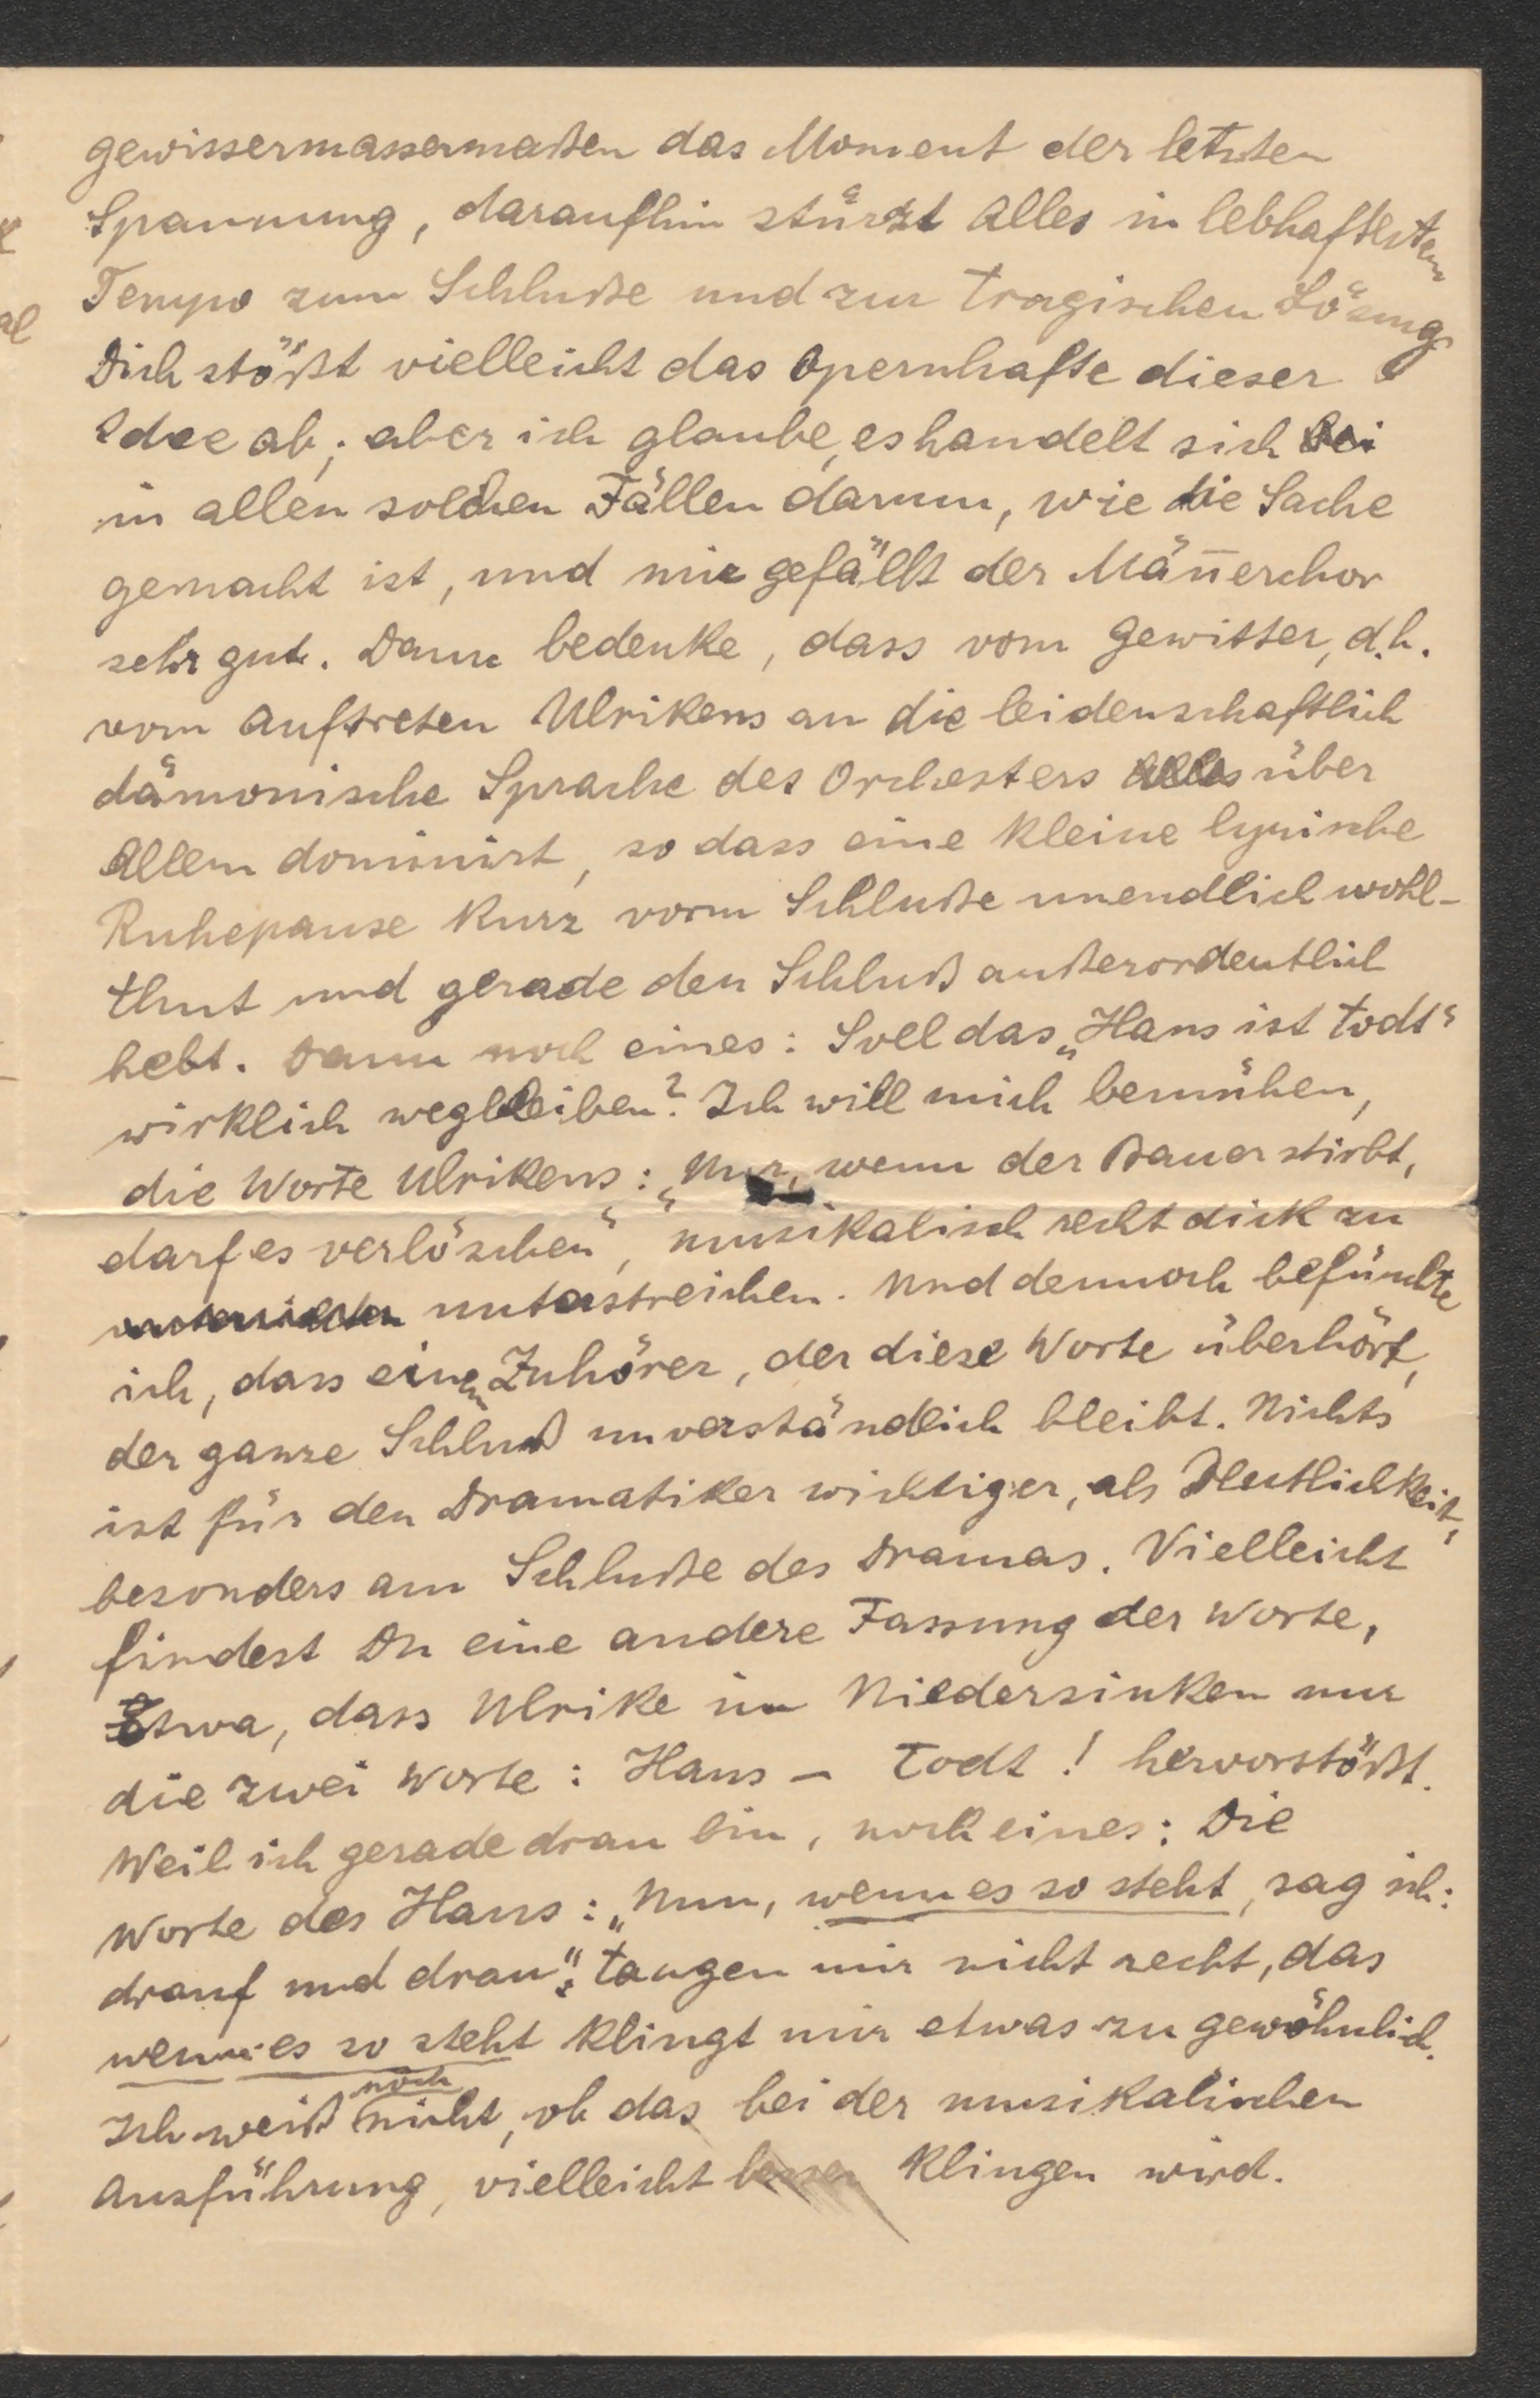 gewissermassermaßen das Moment der letzten
Spannung, daraufhin stürzt Alles in lebhaftestem
Tempo zum Schluße und zur tragischen Lösung.
Dich stößt vielleicht das Opernhafte dieser
Idee ab; aber ich glaube, es handelt sich bei
in allen solchen Fällen darum, wie die Sache
gemacht ist, und mir gefällt der Mäñerchor
sehr gut. Dann bedenke, dass vom Gewitter, d.h.
vom Auftreten Ulrikens an die leidenschaftlich
dämonische Sprache des Orchesters alles über
Allem dominirt, so dass eine kleine lyrische
Ruhepause kurz vorm Schluße unendlich wohl-
thut und gerade den Schluß außerordentlich
hebt. Dann noch eines: Soll das „Hans ist todt“
wirklich wegbleiben? Ich will mich bemühen,
die Worte Ulrikens: „Nur, wenn der Bauer stirbt,
darf es verlöschen“, musikalisch recht dick zu
unterstreichen. Und dennoch befürchte
ich, dass einem Zuhörer, der diese Worte überhört,
der ganze Schluß unverständlich bleibt. Nichts
ist für den Dramatiker wichtiger, als Deutlichkeit,
besonders am Schluße des Dramas. Vielleicht
findest Du eine andere Fassung der Worte,
Etwa, dass Ulrike im Niedersinken nur
die zwei Worte: Hans – todt! hervorstößt.
Weil ich gerade dran bin, noch eines: Die
Worte des Hans: „Nun, wenn es so steht, sag ich:
drauf und dran“: taugen mir nicht recht, das
wenn es so steht klingt mir etwas zu gewöhnlich.
Ich weiß noch nicht, ob das bei der musikalischen
Ausführung, vielleicht besser klingen wird.